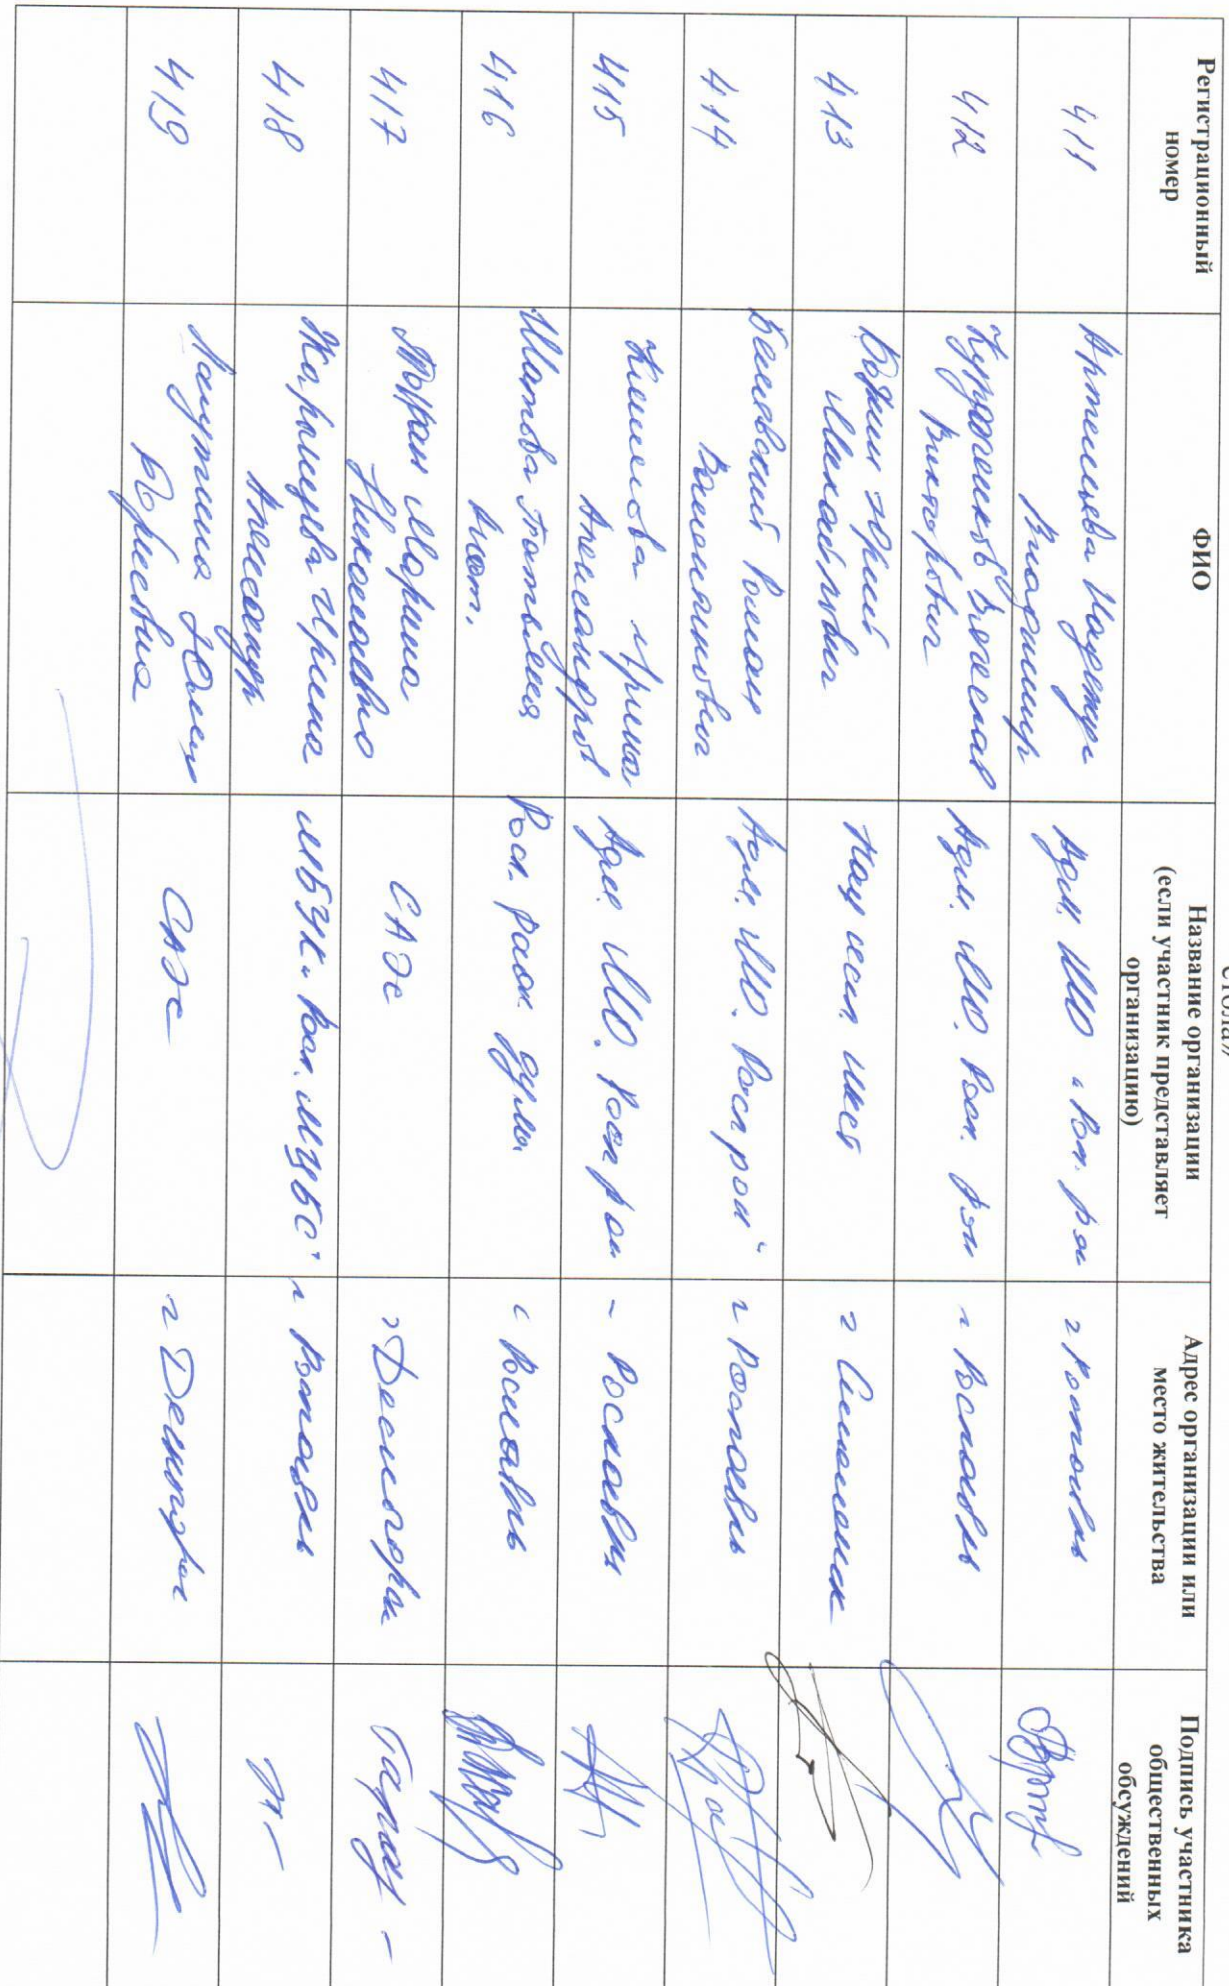 стола»
Регистрационный
номер
ФИО
Название организации
(если участник представляет
организацию)
Адрес организации или
место жительства
Подпись участника
общественных
обсуждений
411
Артемьева Надежда
Владимир
Адм. МО "Рос. р-н
г Рославль
412
Вячеслав
Викторович
Адм. МО. Росл. р-н
г Рославль
413
Юрий
Михайлович
г Смоленск
414
Роман
Адм. МО. Росл рай"
г Рославль
415
Ирина
Александров
Адм. МО. Росл рай
Рославль
416
Шатова Татьяна
Анат.
Росл. рай. дума
г Рославль
417
Марина
Николаевна
САЭС
г Десногорск
418
Ирина
Александр
МБУК "Росл. МЦБС"
г Рославль
419
Лапутина Юлия
Борисовна
САЭС
г Десногорск